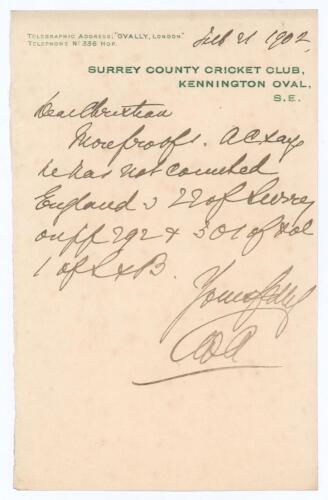 TELEGRAPHIC ADDRESS; "OVALLY, LONDON."
TELEPHONE No 336 HOP.
Feb 21 1902
SURREY COUNTY CRICKET CLUB,
KENNINGTON OVAL,
S.E.
Dear Christian
More proofs. AC says
he has not counted
England v 22 of Surrey
on pp 292 & 301 of Vol
1 of S & B.
Yours